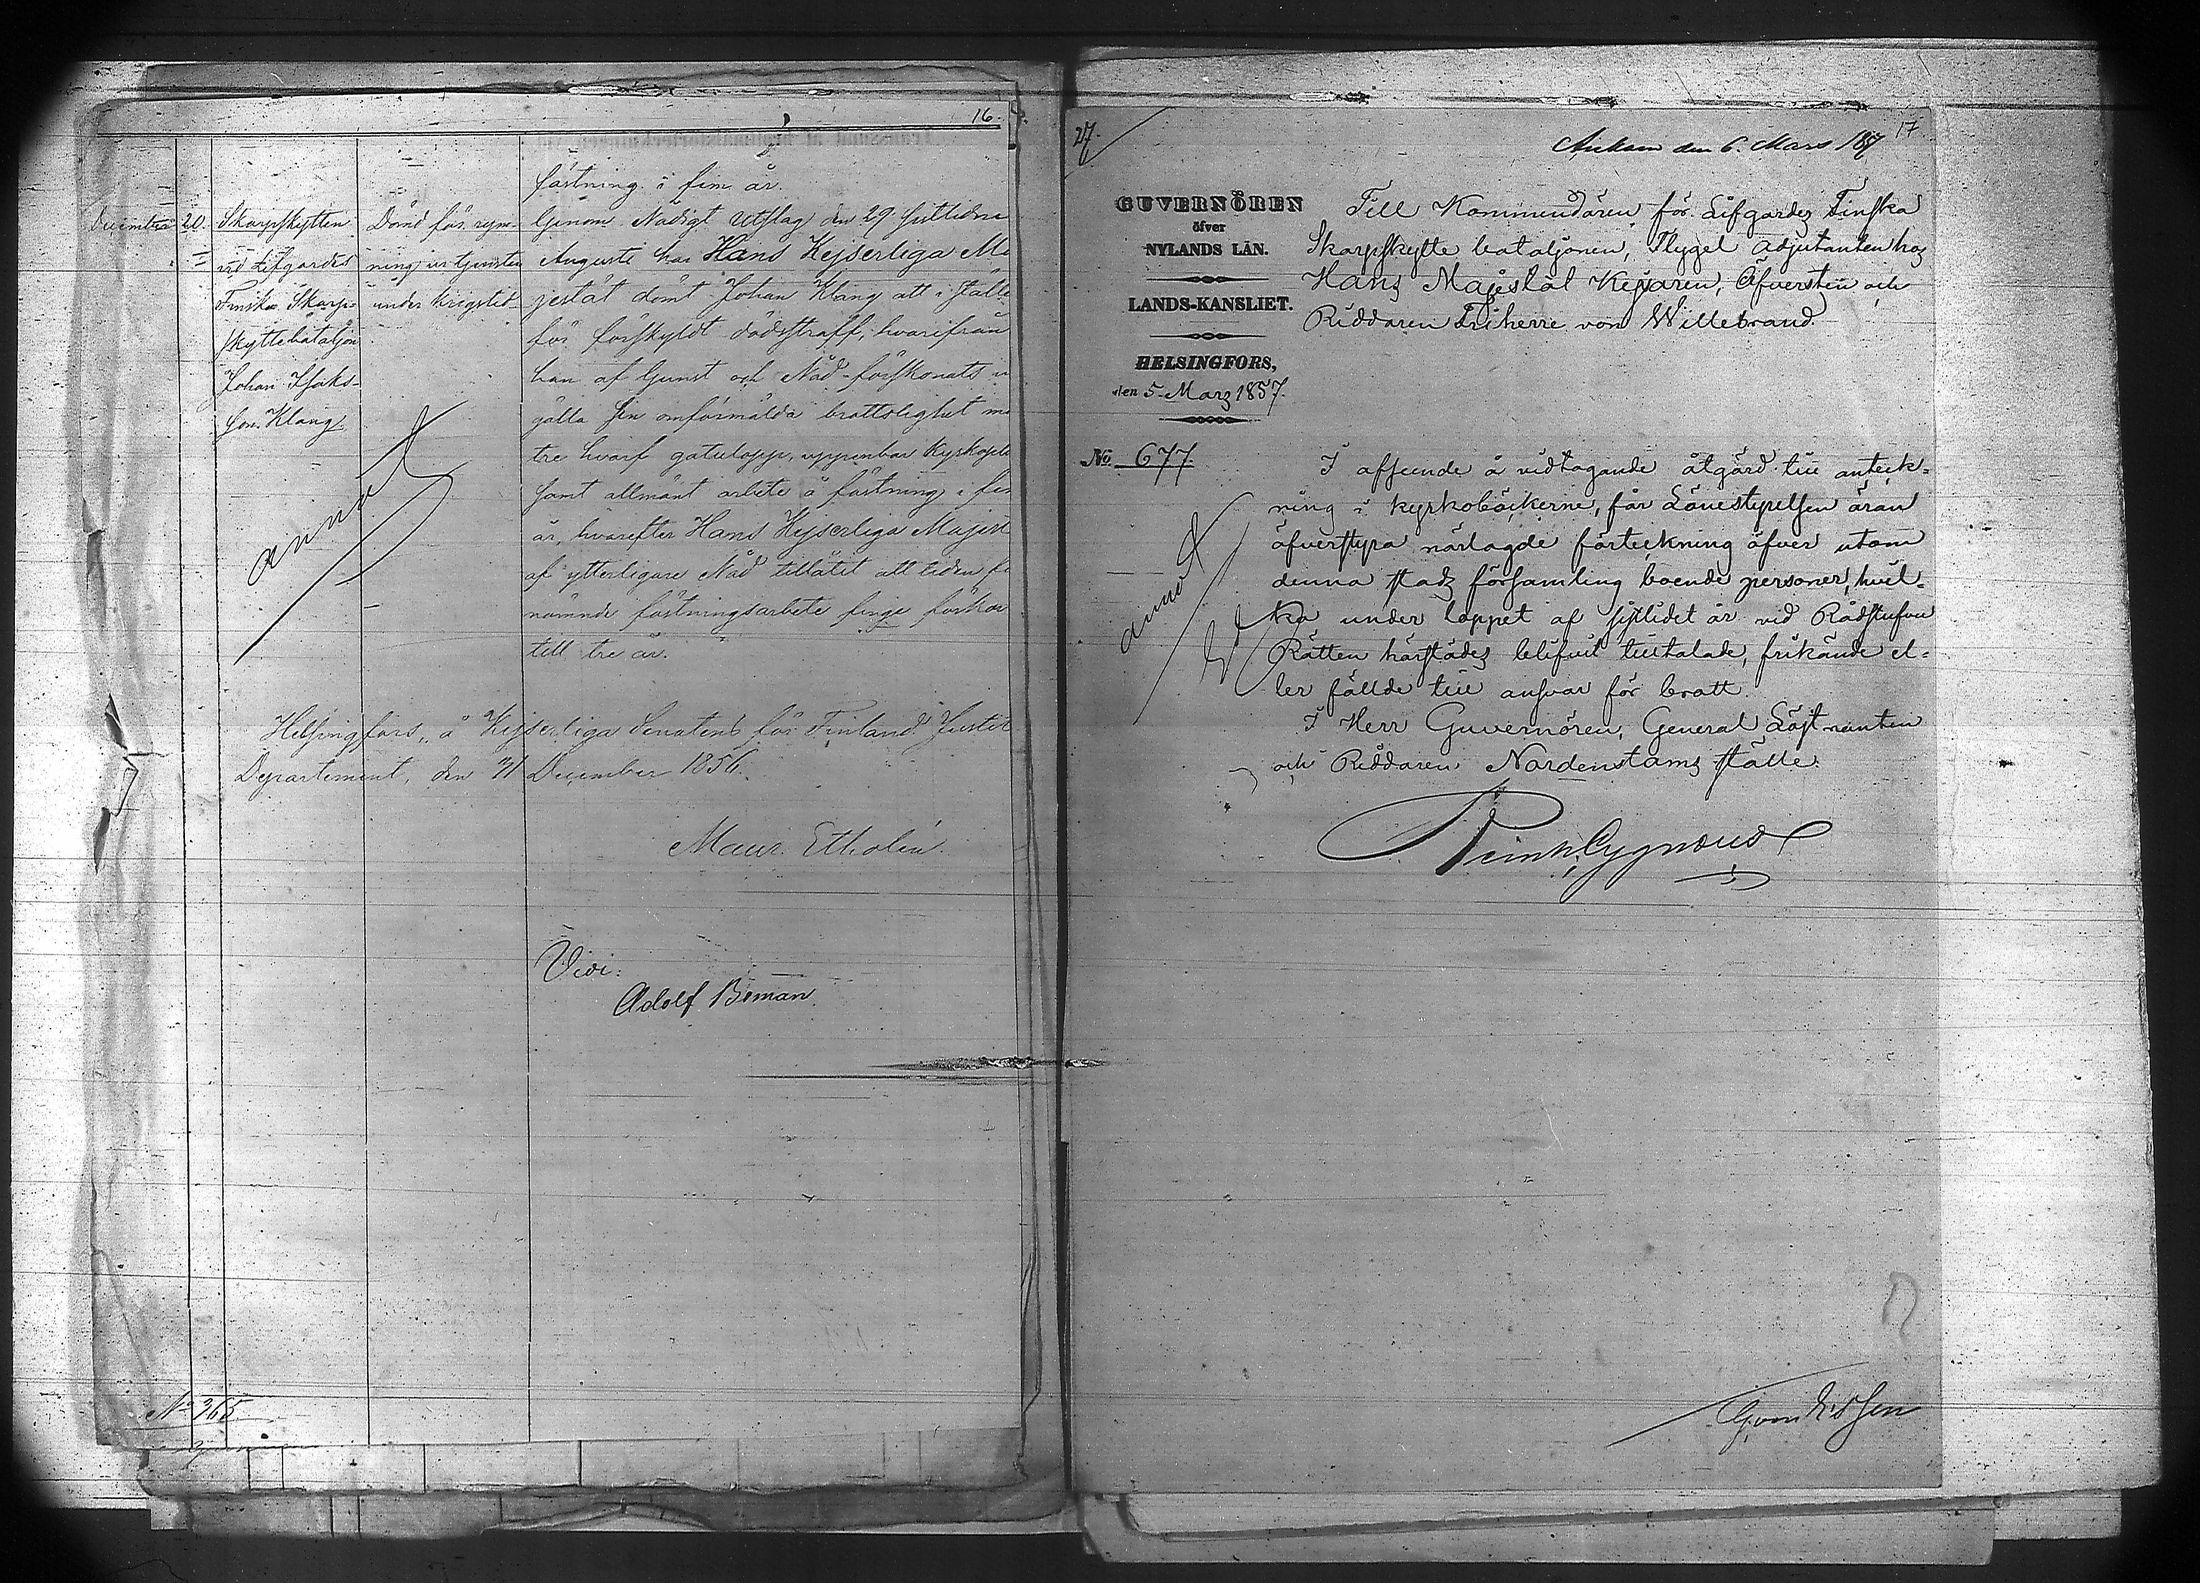 16.
fästning i fem år.
December
20.
Skarpskytten
vid Lifgardes
Finska Skarp-
skyttebataljon
Johan Isaks-
son Klang.
Dömd för rym-
ning ur tjensten
under krigstid.
Genom Nådigt Utslag den 29 sistledne
Augusti har Hans Kejserliga Ma
jestät dömt Johan Klang att i ställe
för förskyldt dödsstraff, hvarifrån
han af Gunst och Nåd förskonats
gälla sin omförmälda brottslighet me
tre hvarf gatulopp, uppenbar kyrkoplig
samt allmänt arbete å fästning i fem
år, hvarefter Hans Kejserliga Majest
af ytterligare Nåd tillåtit att tiden fö
nämnde fästningsarbete finge förkor
till tre år.
annot
Helsingfors, å Kejserliga Senatens för Finland Justit
Departement, den 31 December 1856.
Maur. Etholén.
Vidi:
Adolf Boman.
No 365.
27.
17
Ankom den 6. Mars 1857
GUVERNÖREN
öfver
NYLANDS LÄN.
LANDS-KANSLIET.
HELSINGFORS,
den 5. Mars 1857.
No. 677
Till Kommendören för Lifgardes Finska
Skarpskytte bataljonen, Flygel adjutanten hos
Hans Majestät Kejsaren, Öfversten och
Riddaren Friherre von Willebrand.
I afseende å vidtagande åtgärd till anteck-
ning i kyrkoböckerne, får Länestyrelsen äran
öfverstyra närlagde förteckning öfver utom
denna stads församling boende personer, hvil-
ka under loppet af sistlidet år vid Rådstufvu
Rätten härstädes blifvit tilltalade, frikände el-
ler fällde till ansvar för brott.
I Herr Guvernören, General Löjtnanten
och Riddaren Nordenstams ställe:
annot
Reinh. Cygnæus